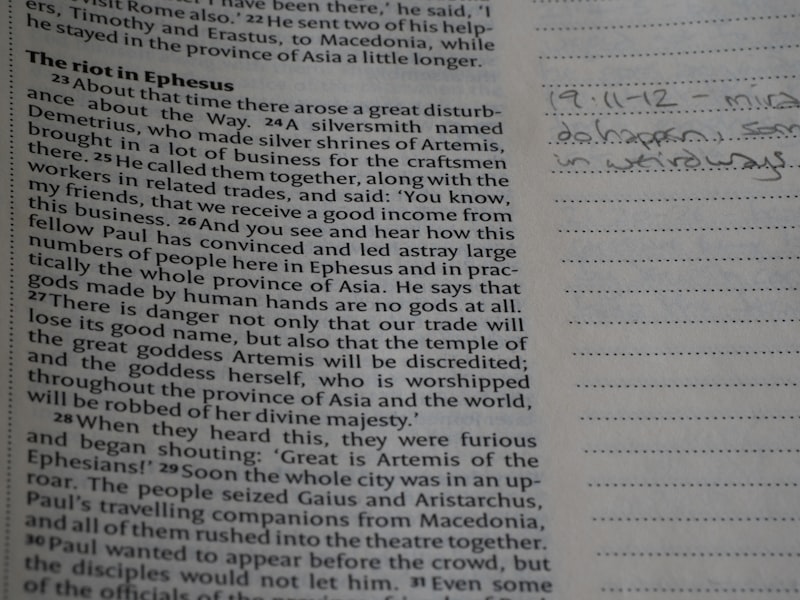 have been there,' he said, 'I
visit Rome also.' 22 He sent two of his help-
ers, Timothy and Erastus, to Macedonia, while
he stayed in the province of Asia a little longer.
The riot in Ephesus
23 About that time there arose a great disturb-
ance about the Way. 24 A silversmith named
Demetrius, who made silver shrines of Artemis,
brought in a lot of business for the craftsmen
there. 25 He called them together, along with the
workers in related trades, and said: 'You know,
my friends, that we receive a good income from
this business. 26 And you see and hear how this
fellow Paul has convinced and led astray large
numbers of people here in Ephesus and in prac-
tically the whole province of Asia. He says that
gods made by human hands are no gods at all.
27 There is danger not only that our trade will
lose its good name, but also that the temple of
the great goddess Artemis will be discredited;
and the goddess herself, who is worshipped
throughout the province of Asia and the world,
will be robbed of her divine majesty.'
28 When they heard this, they were furious
and began shouting: 'Great is Artemis of the
Ephesians!' 29 Soon the whole city was in an up-
roar. The people seized Gaius and Aristarchus,
Paul's travelling companions from Macedonia,
and all of them rushed into the theatre together.
30 Paul wanted to appear before the crowd, but
the disciples would not let him. 31 Even some
of the officials of the
19:11-12 - mira
do happen, som
in weird ways